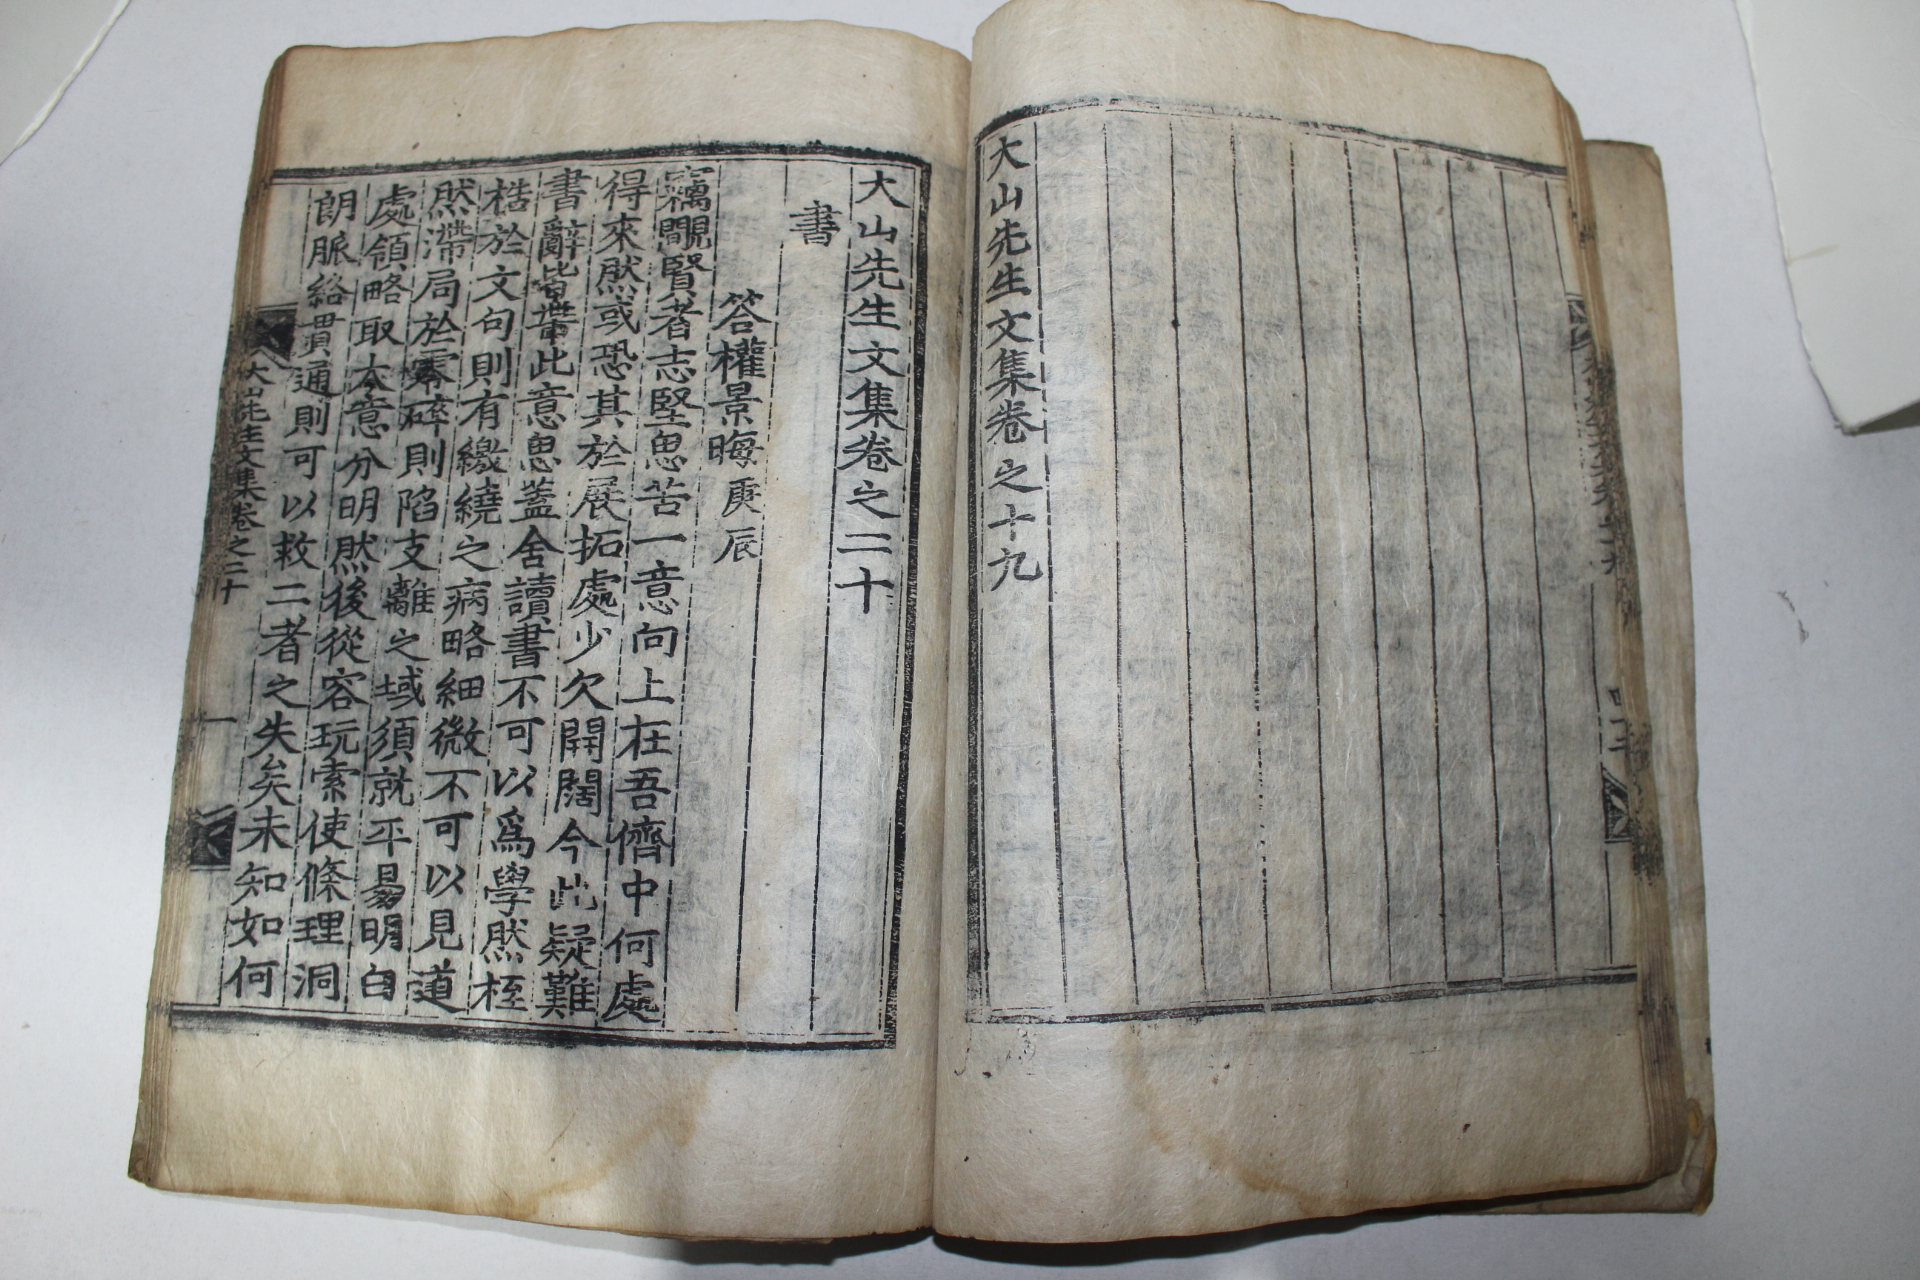 大山先生文集卷之十九
大山先生文集卷之二十
書
答權景晦 庚辰
竊覵賢者志堅思苦一意向上在吾儕中何處
得來然或恐其於展拓處少欠開闊今此疑難
書辭皆帶此意思蓋舍讀書不可以爲學然桎
梏於文句則有繳繞之病略細微不可以見道
然滯局於零碎則陷支離之域須就平易明白
處領略取大意分明然後從容玩索使條理洞
朗脈絡貫通則可以救二者之失矣未知如何
大山先生文集卷之二十
一